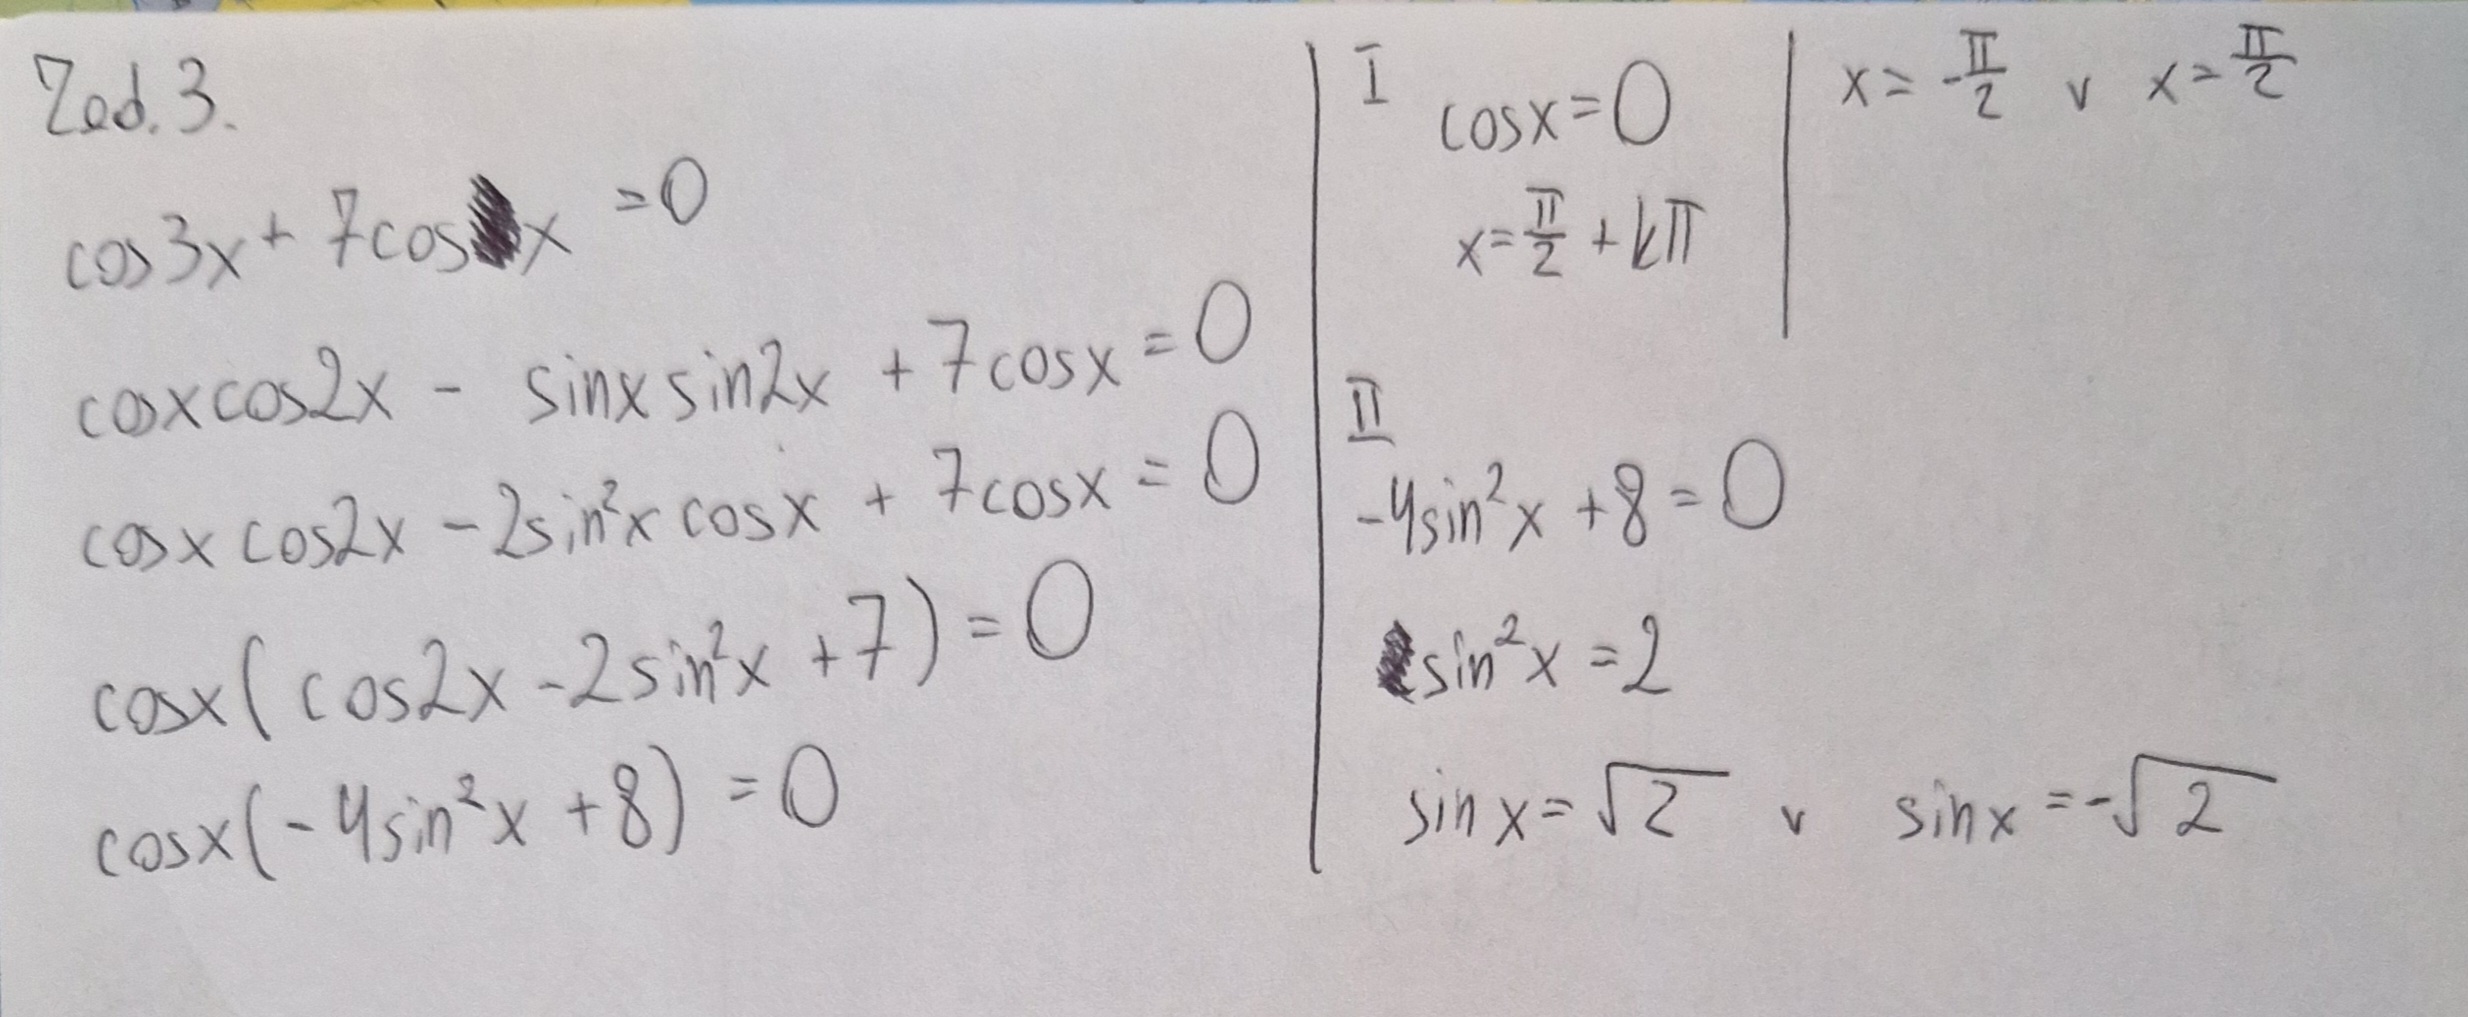 Zad. 3.
cos3x + 7cosx = 0
cosxcos2x - sinxsin2x + 7cosx = 0
cosxcos2x - 2sin²xcosx + 7cosx = 0
cosx(cos2x - 2sin²x + 7) = 0
cosx(-4sin²x + 8) = 0
I
cosx = 0
x = π/2 + kπ
x = -π/2 v x = π/2
II
-4sin²x + 8 = 0
sin²x = 2
sinx = √2 v sinx = -√2